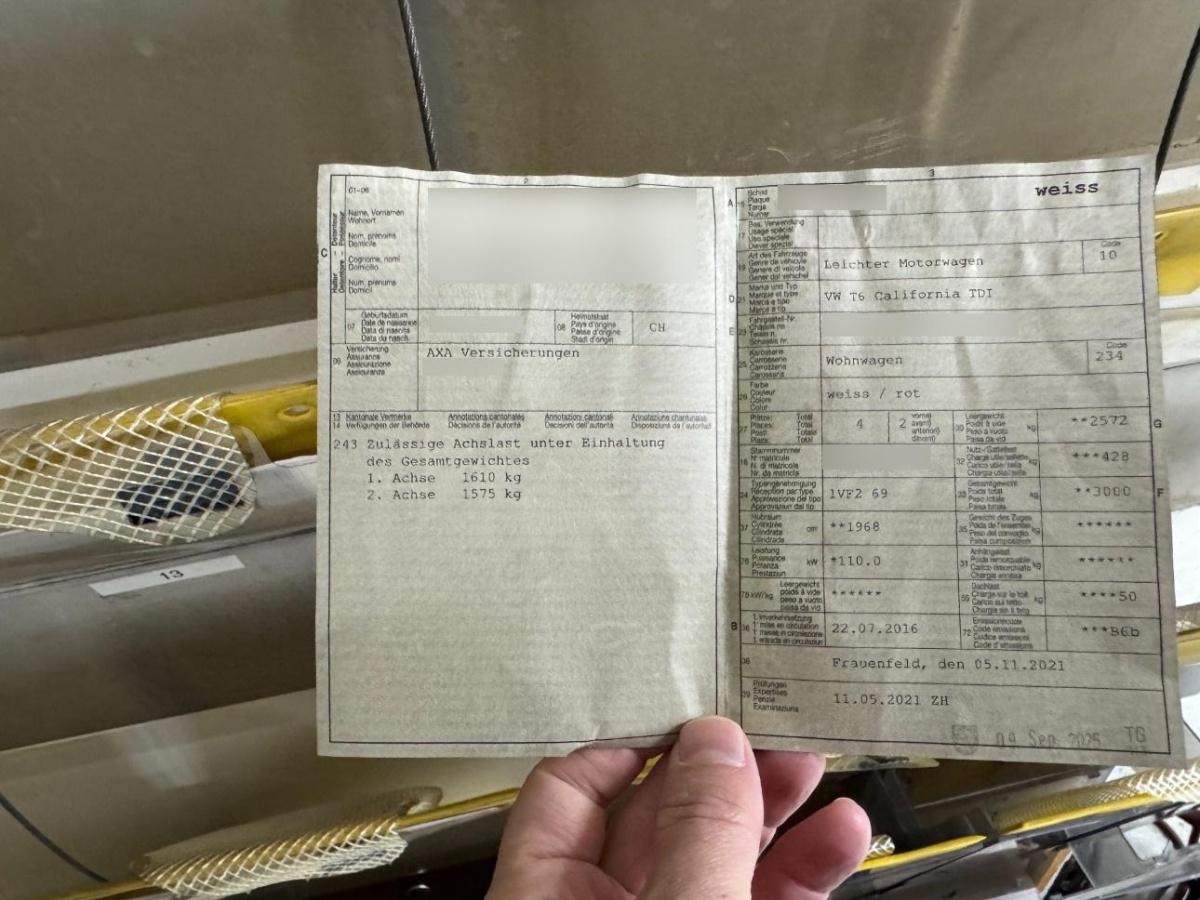 2
01-06
Name, Vornamen
Wohnort
Nom, prénoms
Domicile
Cognome, nomi
Domicilio
Num, prenums
Domicil
C
07
Geburtsdatum
Date de naissance
Data di nascita
Data da nasch.
08
Heimatstaat
Pays d'origine
Paese d'origine
Stadi d'origin
CH
09
Versicherung
Assurance
Assicurazione
Assicuranza
AXA Versicherungen
13 Kantonale Vermerke
14 Verfügungen der Behörde
Annotations cantonales
Décisions de l'autorité
Annotazioni cantonali
Decisioni dell'autorità
Annotaziuns chantunalas
Disposiziuns da l'autoritad
243 Zulässige Achslast unter Einhaltung
des Gesamtgewichtes
1. Achse 1610 kg
2. Achse 1575 kg
3
A 15
Schild
Plaque
Targa
Numer
weiss
17
Bes. Verwendung
Usage spécial
Uso speciale
Diever spezial
19
Art des Fahrzeugs
Genre de véhicule
Genere di veicolo
Gener dal vehichel
Leichter Motorwagen
Code
10
D 21
Marke und Typ
Marque et type
Marca e tipo
Marca e tip
VW T6 California TDI
E 23
Fahrgestell-Nr.
Châssis no
Telaio n.
Schassis nr.
25
Karosserie
Carrosserie
Carrozzeria
Carossaria
Wohnwagen
Code
234
26
Farbe
Couleur
Colore
Colur
weiss / rot
27
Plätze: Total
Places: Total
Posti: Totale
Plazs: Total
4
2
vorne)
avant)
anteriori)
davant)
30
Leergewicht
Poids à vide
Peso a vuoto
Paisa da vid
kg
**2572
G
18
Stammnummer
N° matricule
N. di matricola
Nr. da matricla
32
Nutz-/Sattellast
kg
***428
24
Typengenehmigung
Réception par type
Approvazione del tipo
Approvaziun dal tip
1VF2 69
33
Gesamtgewicht
Poids total
Peso totale
Paisa totala
kg
**3000
F
37
Hubraum
Cylindrée
Cilindrata
Cilindrada
cm³
**1968
35
Gewicht des Zuges
Poids de l'ensemble
Peso del convoglio
Paisa cumposiziun
kg
******
76
Leistung
Puissance
Potenza
Prestaziun
kW
*110.0
31
Anhängelast
Poids remorquable
Carico rimorchiato
Chargia annexa
kg
******
78 kW/kg
Leergewicht
poids à vide
peso a vuoto
paisa da vid
******
55
Dachlast
Charge sur le toit
Carico sul tetto
Chargia sin il tetg
kg
****50
B 36
1. Inverkehrsetzung
1re mise en circulation
1. messa in circolazione
1. entrada en circulaziun
22.07.2016
72
Emissionscode
Code émissions
Codice emissioni
Code d'emissiuns
***B6b
38
Frauenfeld, den 05.11.2021
39
Prüfungen
Expertises
Perizie
Examinaziuns
11.05.2021 ZH
09. Sep. 2025 TG
13